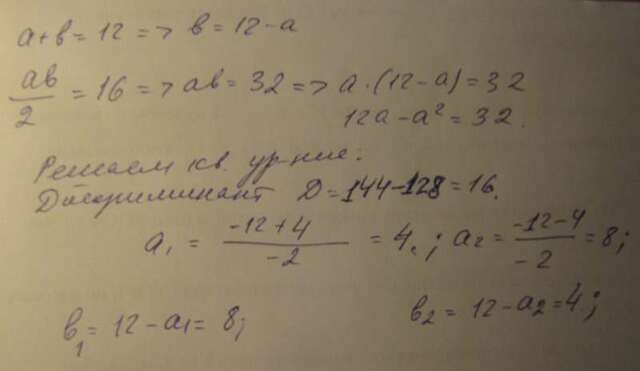 a+b = 12 => b = 12-a
ab/2 = 16 => ab = 32 => a·(12-a) = 32
12a-a² = 32.
Решаем кв. ур-ние:
Дискриминант D = 144-128 = 16.
a₁ = (-12+4)/(-2) = 4; a₂ = (-12-4)/(-2) = 8;
b₁ = 12-a₁ = 8; b₂ = 12-a₂ = 4;